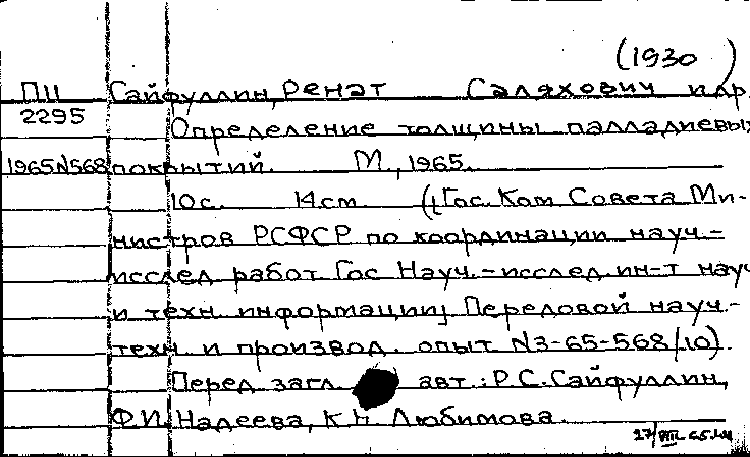 (1930)
ПII Сайфуллин, Ренат Саляхович и др.
2295
Определение толщины палладиевых
1965N568 покрытий. М., 1965.
10 с. 14 см. (Гос. Ком Совета Ми-
нистров РСФСР по координации науч.-
исслед работ Гос Науч.-исслед. ин-т науч
и техн информации Передовой науч.-
техн. и производ. опыт N3-65-568/10).
Перед загл. авт.: Р.С. Сайфуллин,
Ф.И. Надеева, К.Н. Любимова.